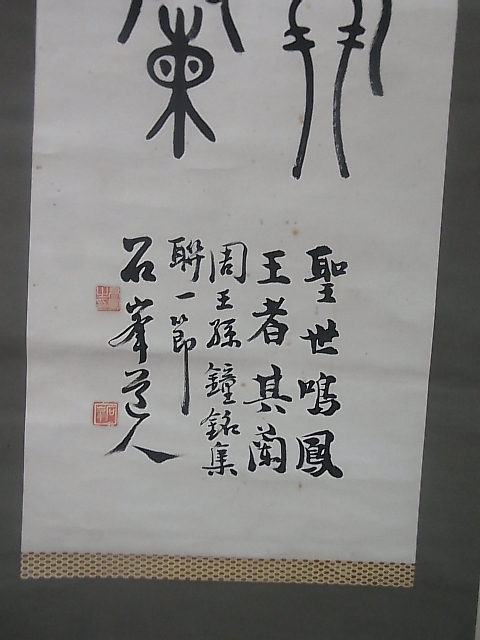 聖世鳴鳳
王者其蘭
周王孫鐘銘集
聯一節
石峯道人